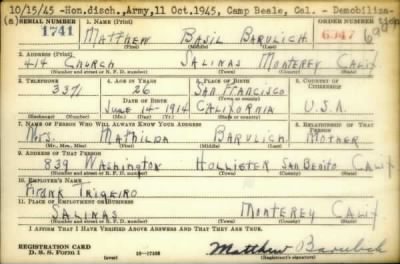 10/15/45 -Hon.disch.,Army,11 Oct.1945, Camp Beale, Cal. - Demobiliza-
(a) SERIAL NUMBER 1. NAME (Print) ORDER NUMBER tion
1741 MATTHEW BASIL BARULICH
(First) (Middle) (Last)
2. ADDRESS (Print)
414 CHURCH SALINAS MONTEREY CALIF
(Number and street or R. F. D. number) (Town) (County) (State)
3. TELEPHONE 4. AGE IN YEARS 5. PLACE OF BIRTH 6. COUNTRY OF CITIZENSHIP
3371 26 SAN FRANCISCO
DATE OF BIRTH (Town or county)
JUNE 14-1914 CALIFORNIA U.S.A.
(Exchange) (Number) (Mo.) (Day) (Yr.) (State or country)
7. NAME OF PERSON WHO WILL ALWAYS KNOW YOUR ADDRESS 8. RELATIONSHIP OF THAT PERSON
MRS. MATHILDA BARULICH MOTHER
(Mr., Mrs., Miss) (First) (Middle) (Last)
9. ADDRESS OF THAT PERSON
839 WASHINGTON HOLLISTER SAN BENITO CALIF
(Number and street or R. F. D. number) (Town) (County) (State)
10. EMPLOYER'S NAME
FRANK TRIGEIRO
11. PLACE OF EMPLOYMENT OR BUSINESS
SALINAS MONTEREY CALIF
(Number and street or R. F. D. number) (Town) (County) (State)
I AFFIRM THAT I HAVE VERIFIED ABOVE ANSWERS AND THAT THEY ARE TRUE.
REGISTRATION CARD
D. S. S. FORM 1 (over) Matthew Barulich
(Registrant's signature)